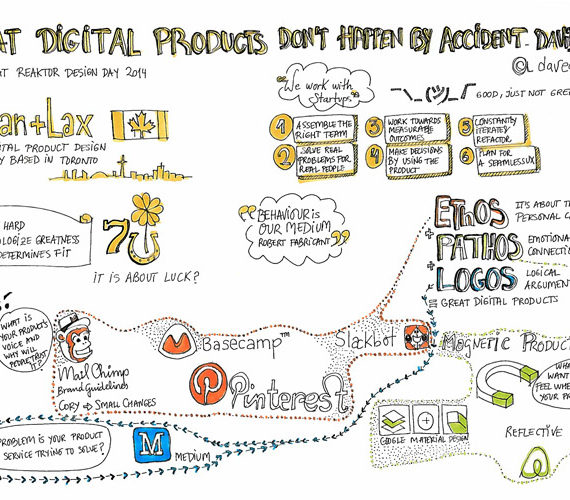 AT DIGITAL PRODUCTS DON'T HAPPEN BY ACCIDENT. DAVI
AT REAKTOR DESIGN DAY 2014
@ dave
an+Lax
ITAL PRODUCT DESIGN
Y BASED IN TORONTO
"We work with
Startups."
¯\_(ツ)_/¯ GOOD, JUST NOT GRE
1 ASSEMBLE THE
RIGHT TEAM
2 SOLVE REAL
PROBLEMS FOR
REAL PEOPLE
3 WORK TOWARDS
MEASURABLE
OUTCOMES
4 MAKE DECISIONS
BY USING THE
PRODUCT
5 CONSTANTLY
ITERATE/
REFACTOR
6 PLAN FOR
A SEAMLESS UX
HARD
OLOGIZE GREATNESS
DETERMINES FIT
7
IT IS ABOUT LUCK?
"BEHAVIOUR IS
OUR MEDIUM"
ROBERT FABRICANT
ETHOS IT'S ABOUT TH
PERSONAL C
+ PATHOS EMOTIONA
CONNECTI
+ LOGOS LOGICAL
ARGUMENT
= GREAT DIGITAL PRODUCTS
WHAT IS
YOUR PRODUCT'S
VOICE AND
WHY WILL
PEOPLE TRUST
IT?
Mail Chimp
Brand Guidelines
CORY → SMALL CHANGES
Basecamp™
Pinterest
Slackbot
MAGNETIC PRODUC
WHAT
WANT
FEEL WHE
YOUR P
GOOGLE MATERIAL DESIGN
REFLECTIVE
PROBLEM IS YOUR PRODUCT
SERVICE TRYING TO SOLVE?
M
MEDIUM